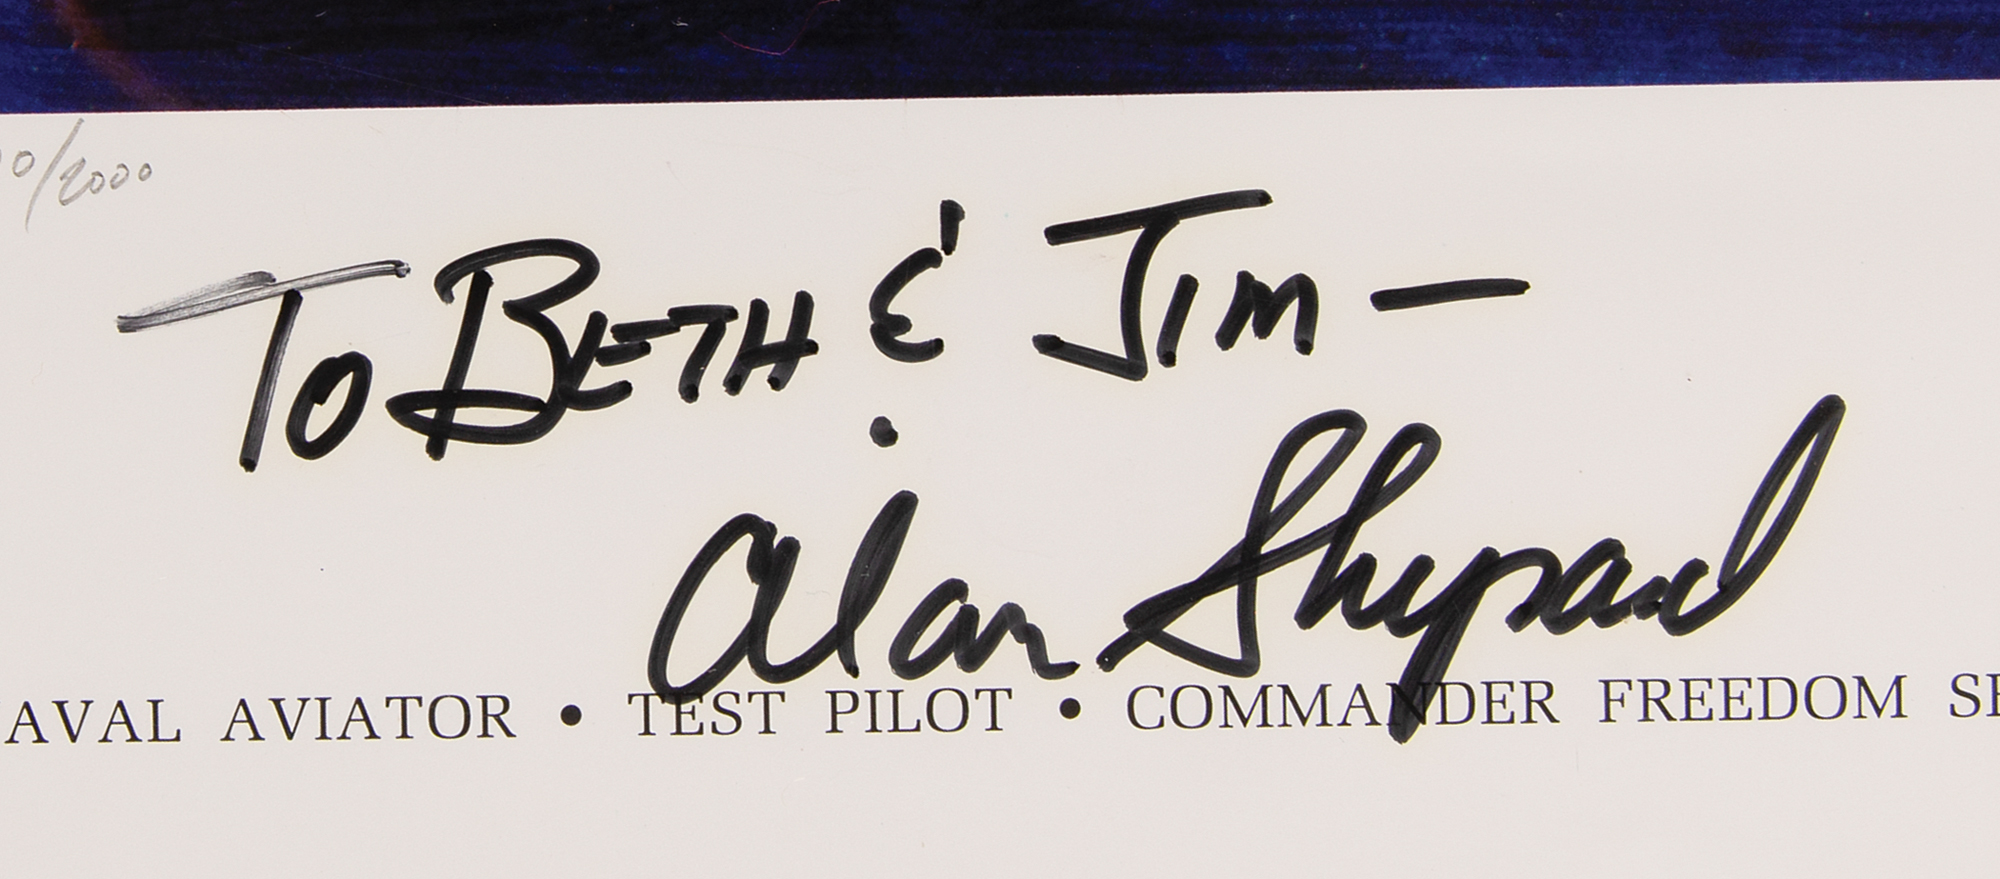 0/2000
To BETH & JIM —
Alan Shepard
AVAL AVIATOR • TEST PILOT • COMMANDER FREEDOM SE